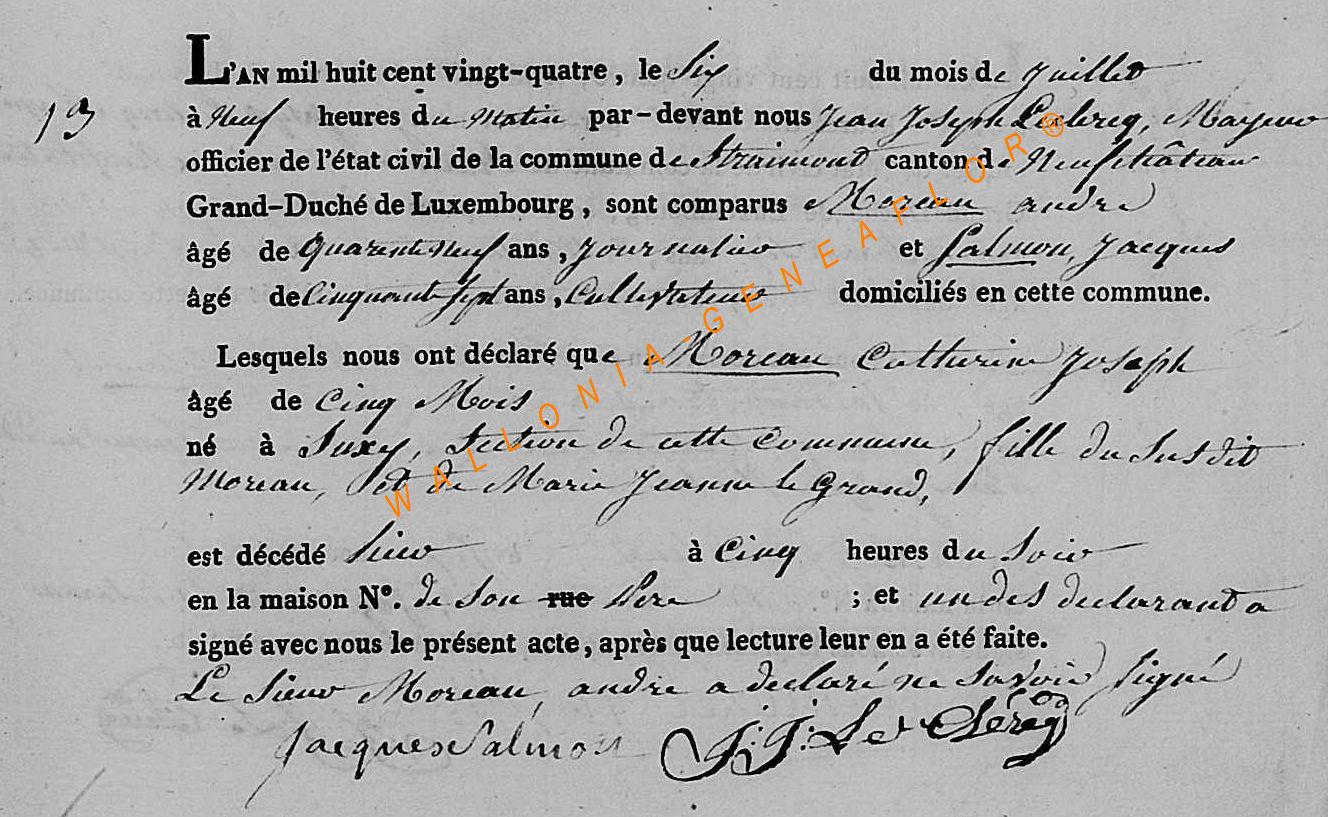 L'AN mil huit cent vingt-quatre, le Six du mois de Juillet
13
à Neuf heures du Matin par-devant nous Jean Joseph Leclercq, Mayeur
officier de l'état civil de la commune de Straimont canton de Neufchâteau
Grand-Duché de Luxembourg, sont comparus Moreau andré
âgé de Quarente Neuf ans, Journalier et Salmon, Jacques
âgé de Cinquante Sept ans, Cultivateur domiciliés en cette commune.
Lesquels nous ont déclaré que Moreau Catherine Joseph
âgé de Cinq Mois
né à Suxy, Section de cette Commune, fille du Susdit
Moreau, et de Marie Jeanne le Grand,
est décédé hier à Cinq heures du Soir
en la maison N°. de Son rue Père ; et un des declarant a
signé avec nous le présent acte, après que lecture leur en a été faite.
Le Sieur Moreau, andré a declaré ne Savoir Signé
Jacques Salmon J: J: Le Clercq
WALLONIA-GENEAFLOR®